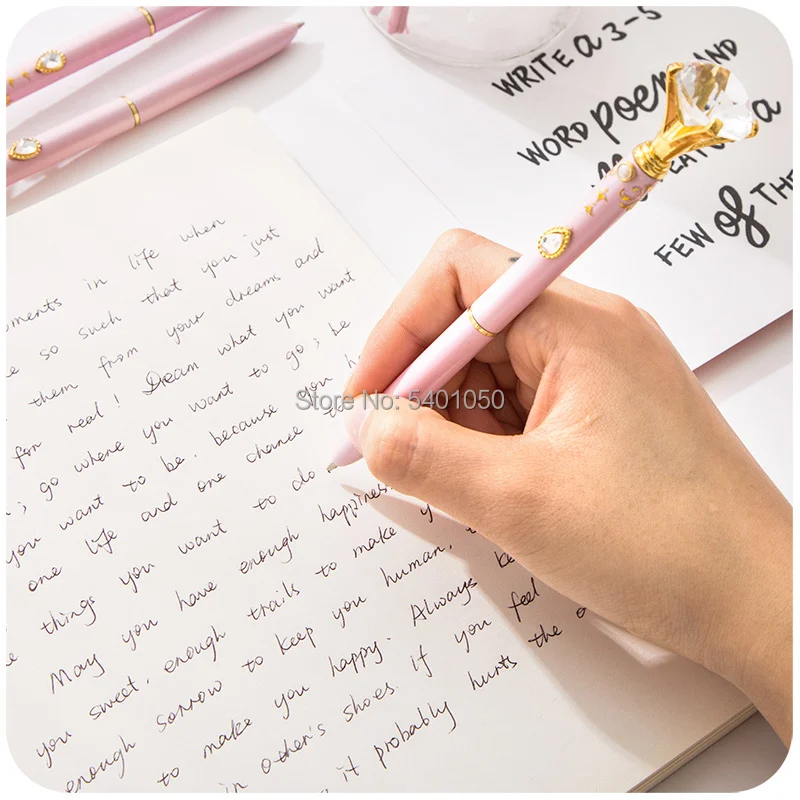 WRITE a 3-5
WORD poem AND
FEATURE a
FEW of THE
oments in life when
e so such that you just
them from your dreams and
for real! Dream what you want
; go where you want to go; be
you want to be, because you ha
one life and one chance
things you want to do
May you have enough happiness
you sweet, enough trails to make y
enough sorrow to keep you human,
to make you happy. Always be
in other's shoes. if you feel
it probably hurts the o
Store No: 5401050